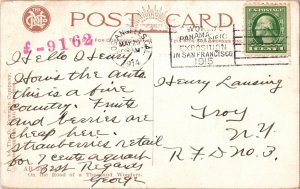 POST CARD
£-9162
LOS ANGELES, CAL.
MAY 29
1914
WORLD'S
PANAMA PACIFIC
EXPOSITION
IN SAN FRANCISCO
1915
Hello Henry
How's the auto.
this is a fine
country. Fruits
and berries are
cheap here.
strawberries retail
for 7 cents a quart
Best Regards
George
On the Road of a Thousand Wonders
Henry Lansing
Troy
N.Y.
R.F.D No. 3.